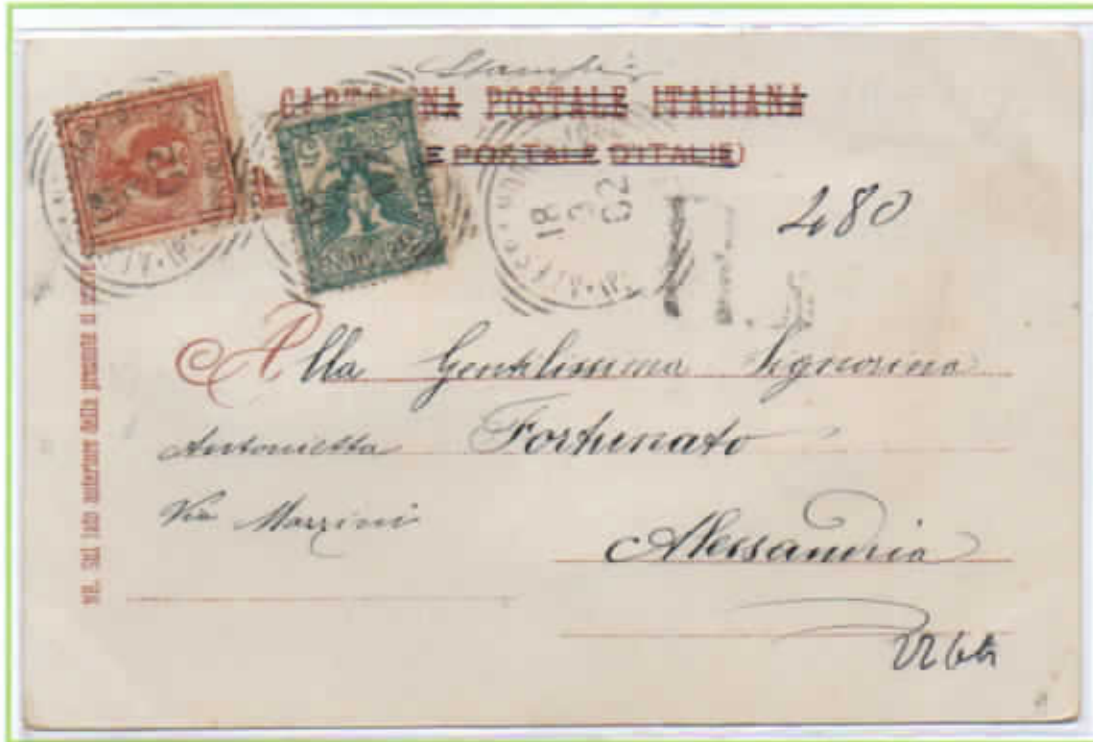 Stampe
CARTOLINA POSTALE ITALIANA
E POSTALE D'ITALIE)
18
3
02
T
480
Alla Gentilissima Signorina
Antonietta Fortunato
Via Mazzini
Alessandria
NB. Sul lato anteriore della presente si scrive